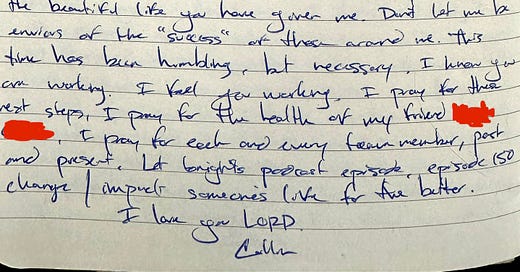 the beautiful life you have given me. Don't let me be
envious of the "success" of those around me. This
time has been humbling, but necessary. I know you
are working. I feel you working. I pray for these
next steps, I pray for the health of my friend
. I pray for each and every team member, past
and present. Let tonight's podcast episode, episode 150
change / impact someone's life for the better.
I love you LORD.